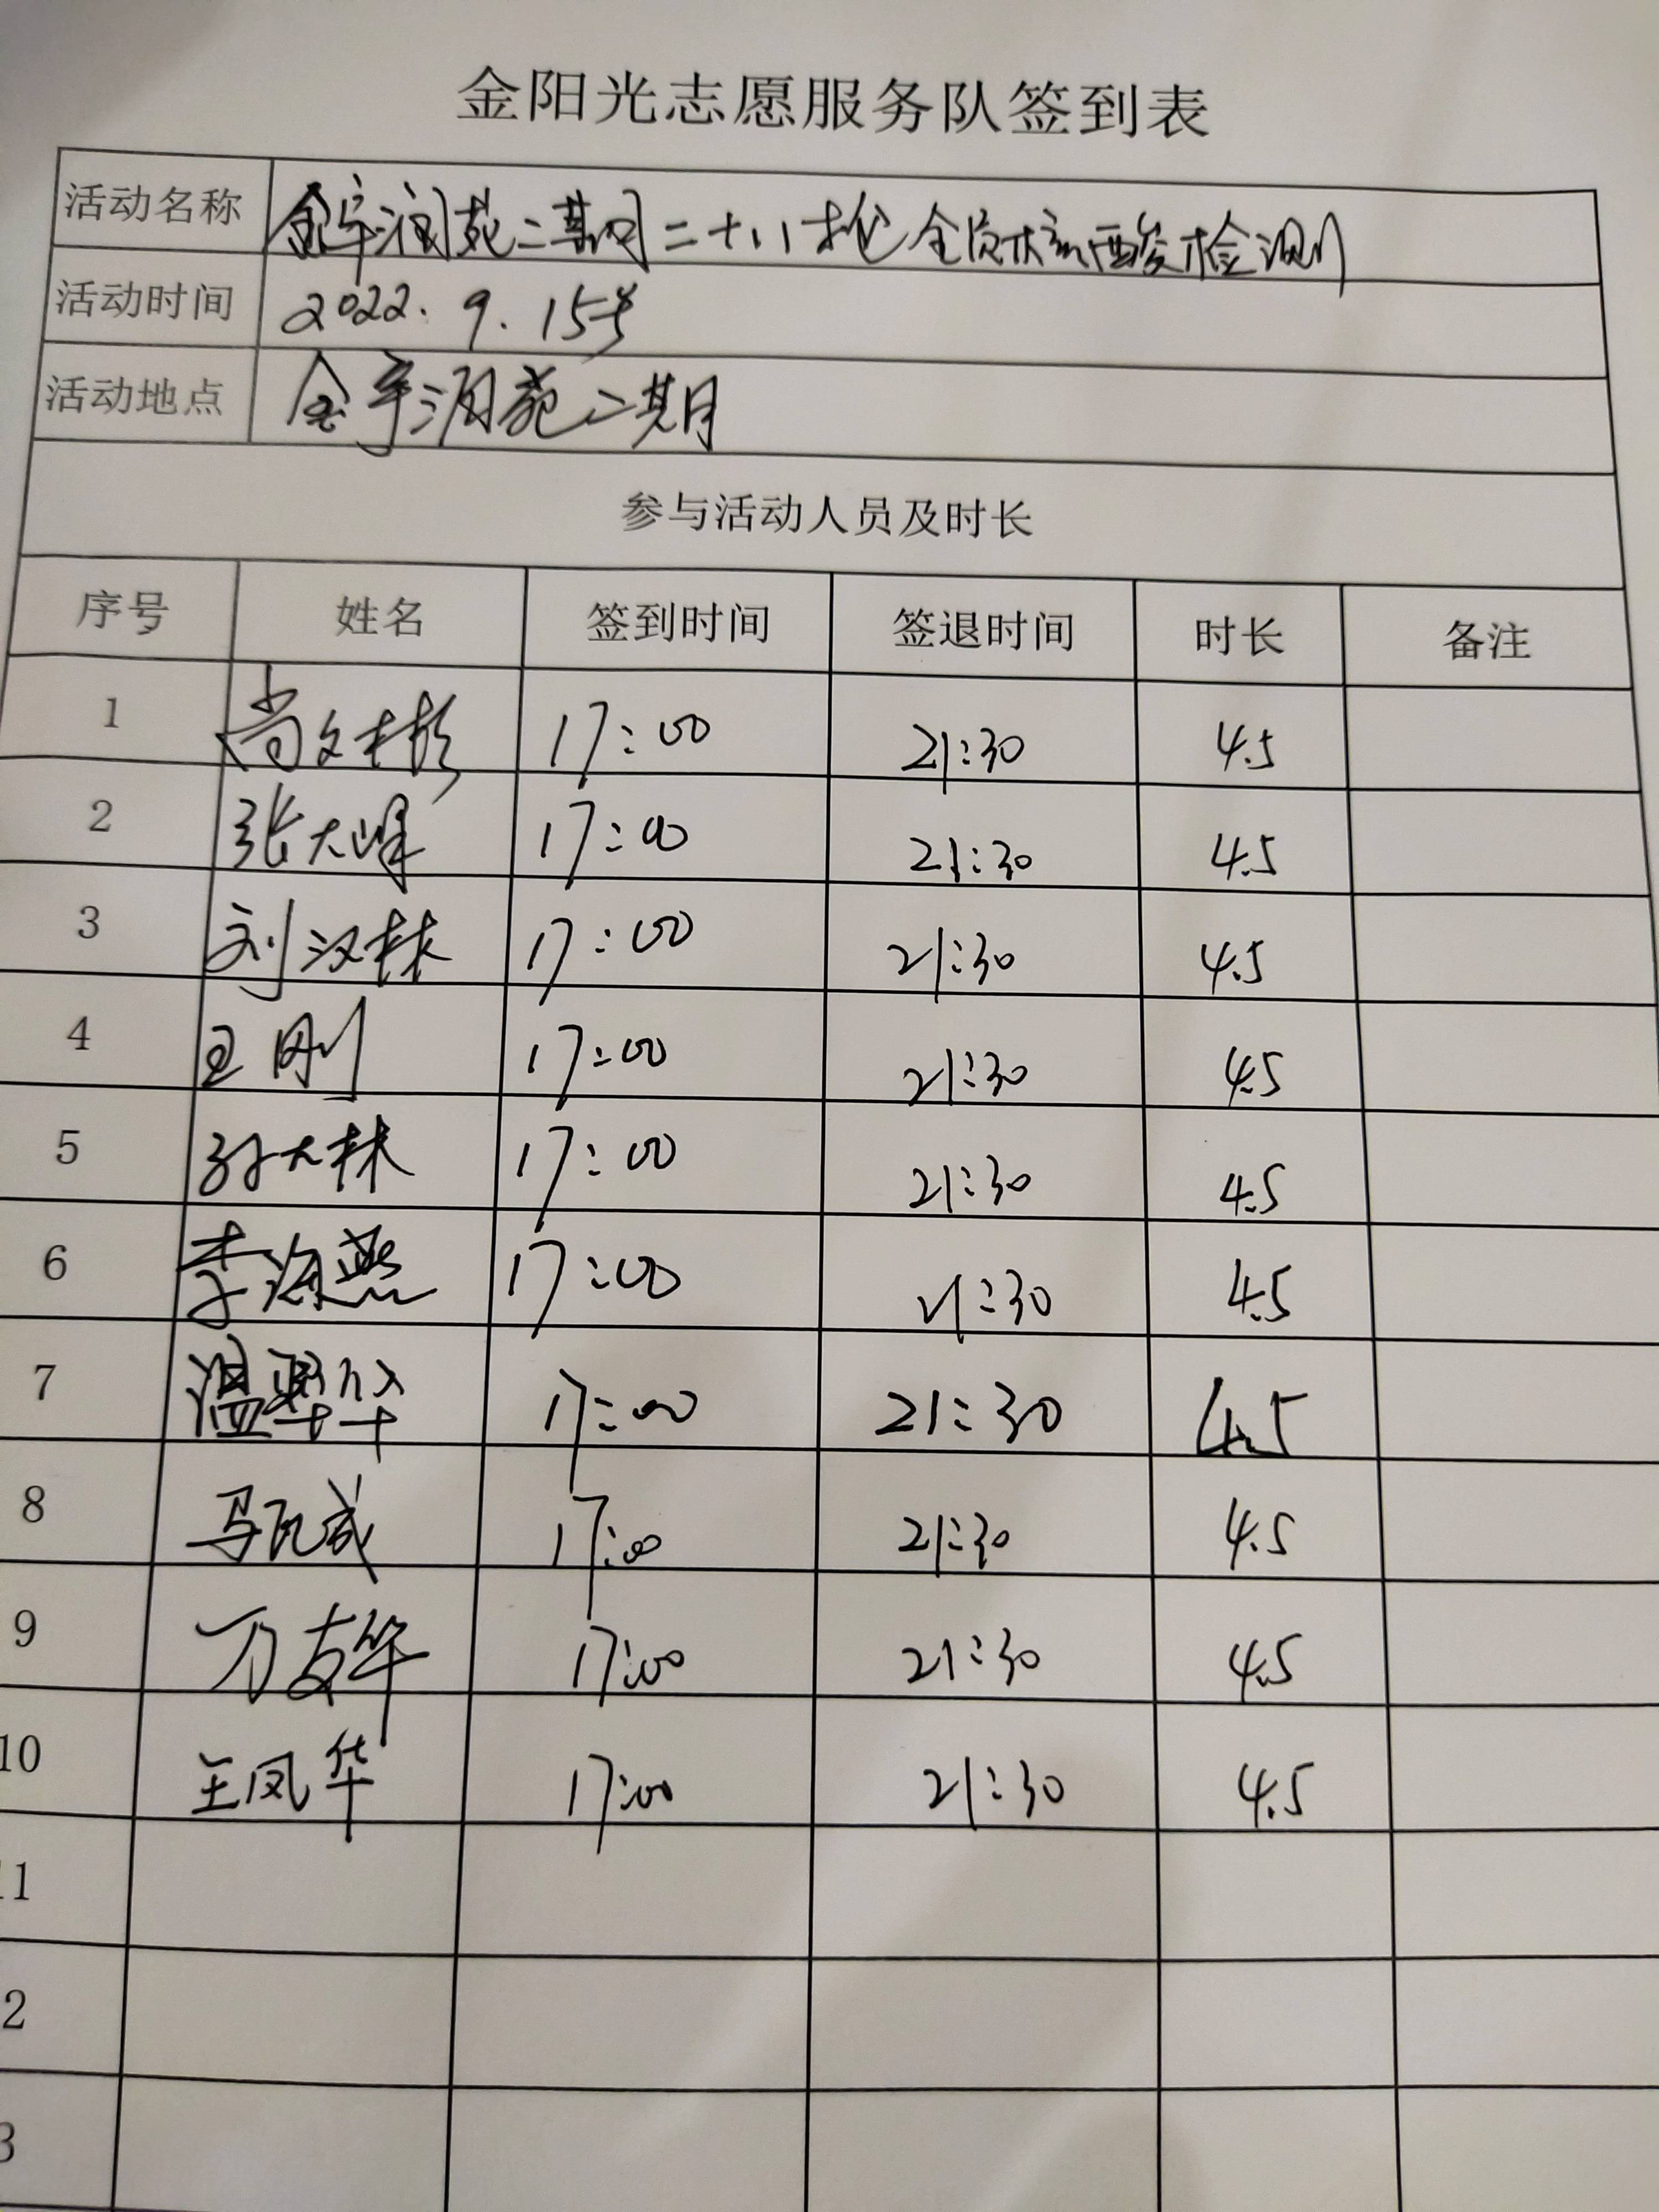 金阳光志愿服务队签到表
活动名称 金宇润苑二期 二十八轮全员核酸检测
活动时间 2022.9.15号
活动地点 金宇润苑二期
参与活动人员及时长
序号 姓名 签到时间 签退时间 时长 备注
1 尚文彬 17:00 21:30 4.5
2 张大峰 17:00 21:30 4.5
3 刘汉林 17:00 21:30 4.5
4 王刚 17:00 21:30 4.5
5 孙大林 17:00 21:30 4.5
6 李海燕 17:00 21:30 4.5
7 温翠华 17:00 21:30 4.5
8 马 成 17:00 21:30 4.5
9 万友华 17:00 21:30 4.5
10 王凤华 17:00 21:30 4.5
11
2
3